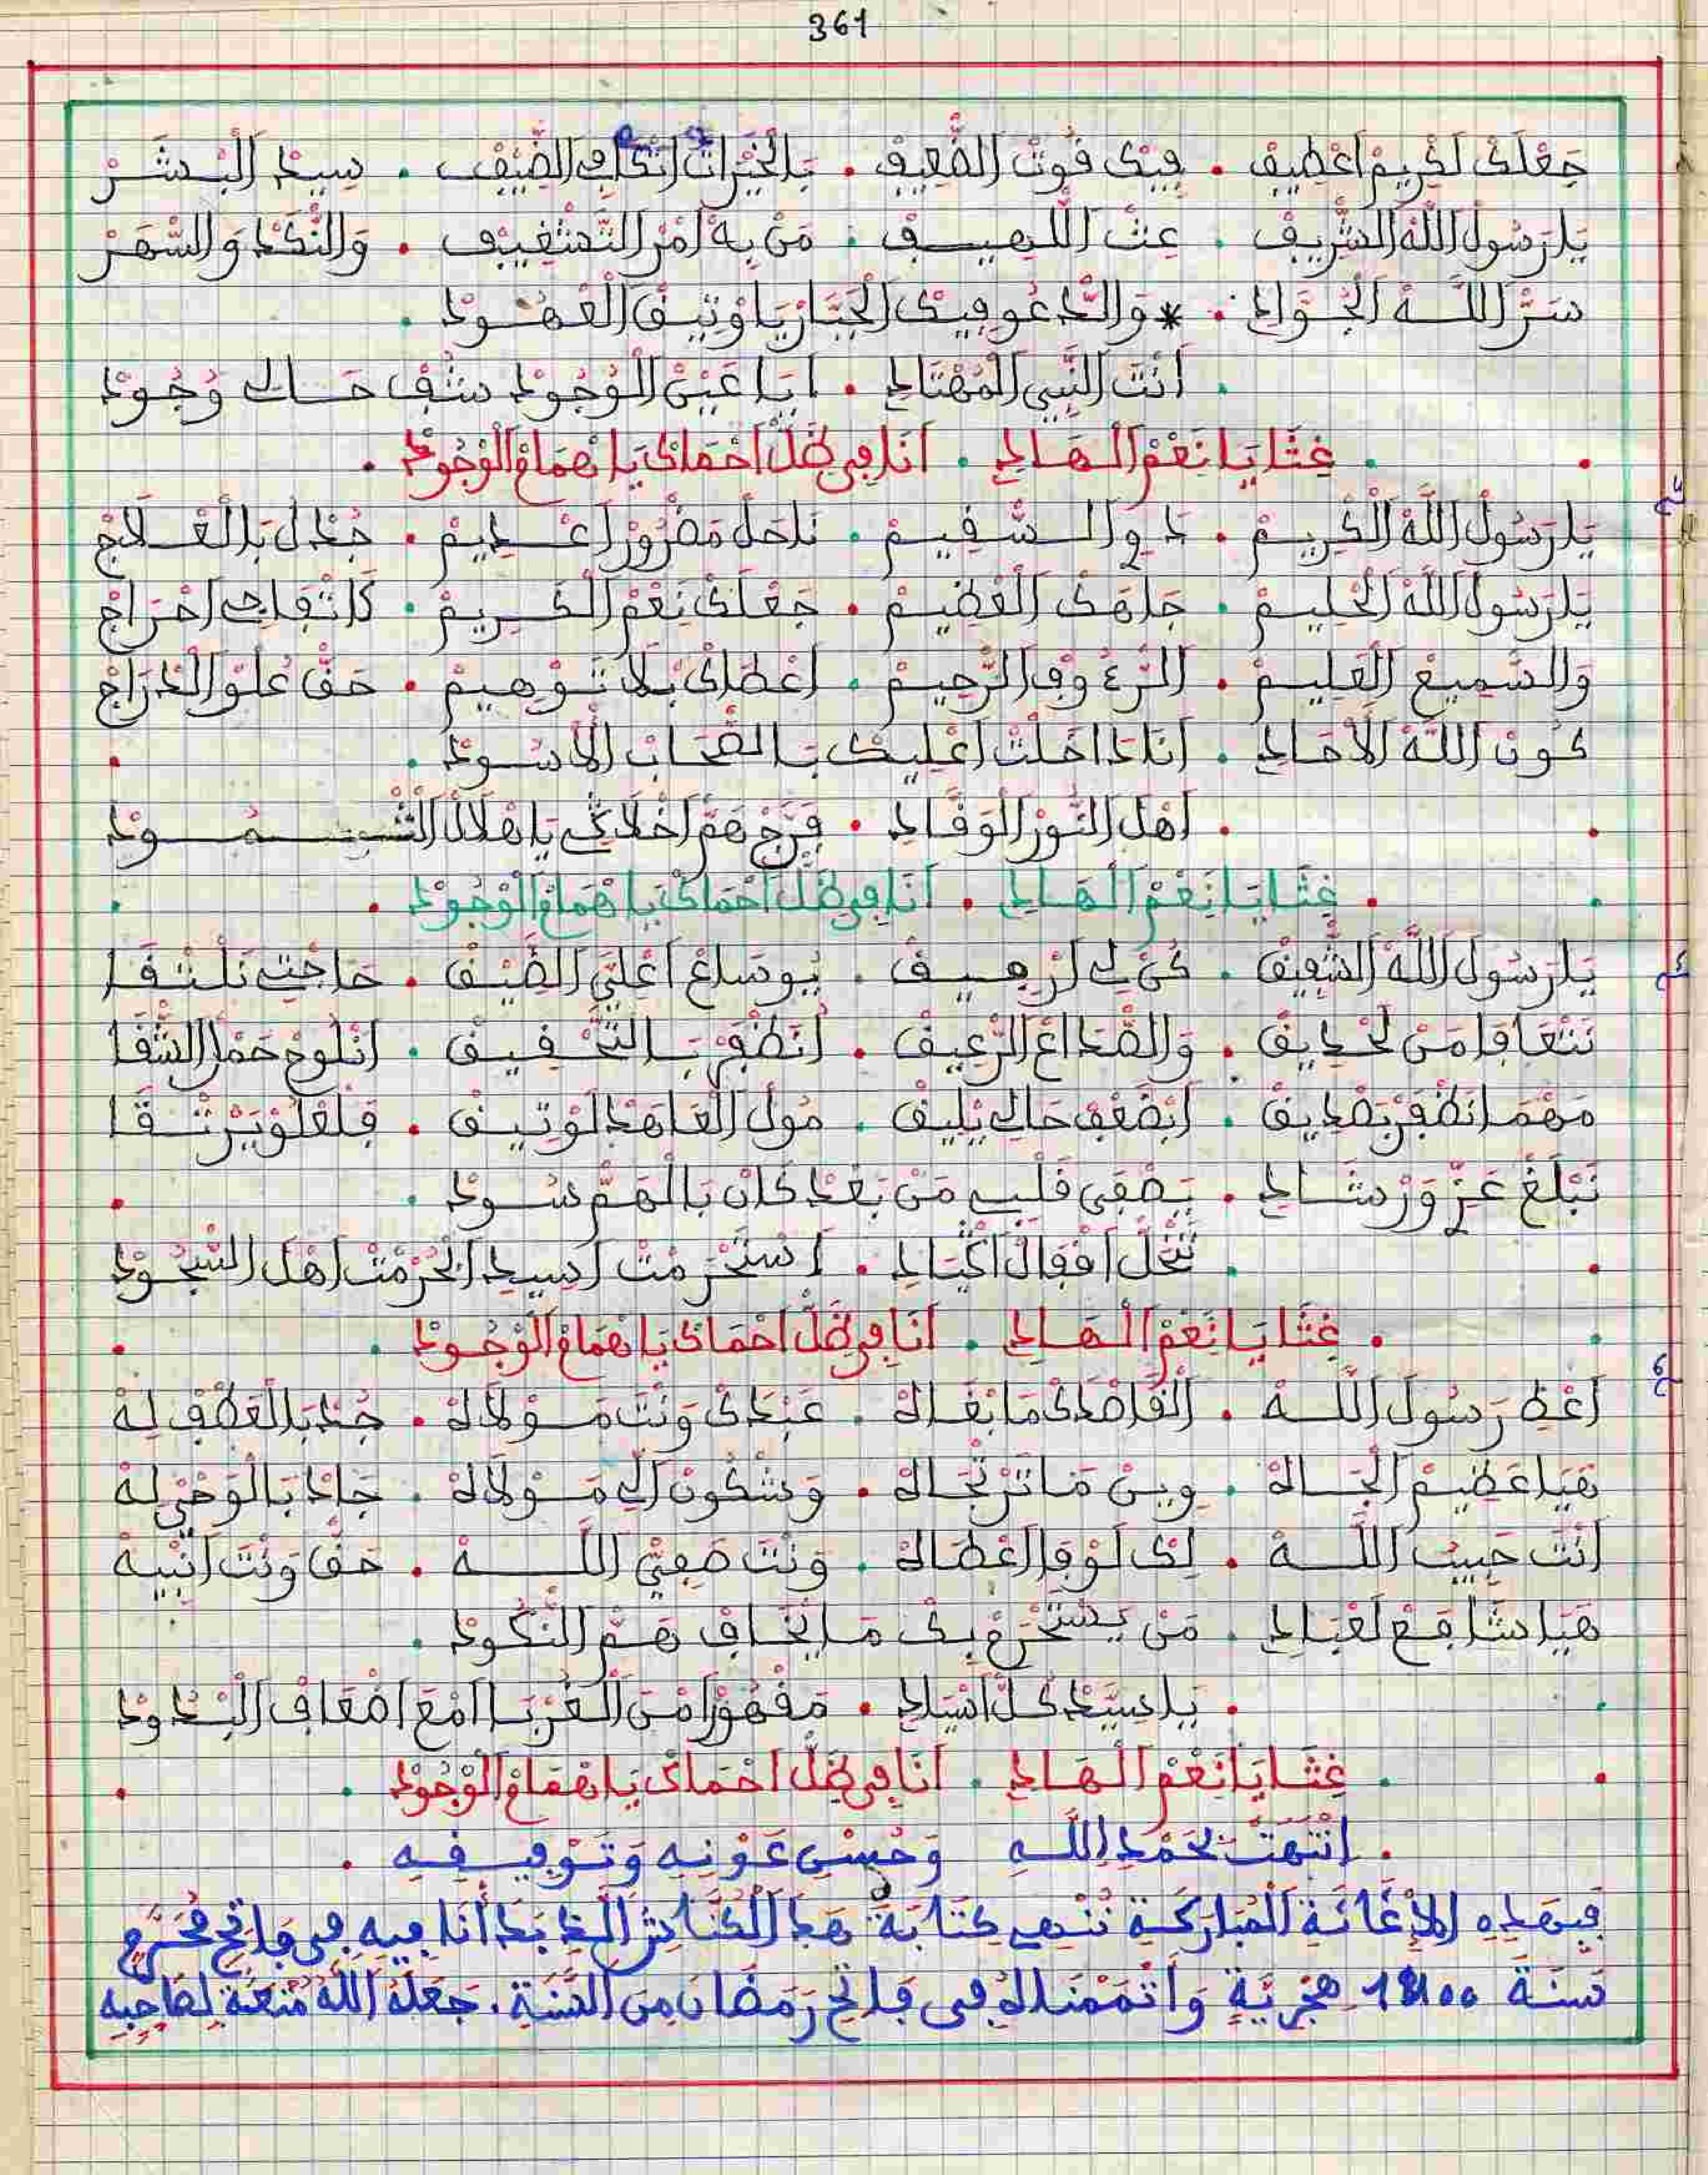 361
جَعْلَكْ لَكْرِيمْ اعْطِيفْ . فِيكْ قُوتْ الضْعِيفْ . بَالْخَيْرَاتْ اتْكَافِ الضِّيفْ . سِيدْ الْبْشَرْ
يَا رَسُولْ اللَّهْ الشْرِيفْ . غِثْ اللْهِيفْ . مَنْ بِهْ أمْرْ التَّشْغِيفْ . وَالنّْكَدْ وَالسّْهَرْ
سَرّْ اللَّهْ الْجْوَادِ . * وَالدَّعُو فِيكْ الْجَبَّارْ يَا وْثِيقْ الْعْهُودْ .
. أنْتَ النّْبِي الْمَهْتَادِ . أيَا عَيْنْ الْوُجُودْ شُفْ حَالِي وْجُودْ
. غِثْنَا يَا نَعْمْ الْهَادِ . أنَا فِي ظَلّْ احْمَاكْ يَا هْمَامْ الْوْجُودْ .
يَا رَسُولْ اللَّهْ الْكْرِيمْ . دَوِ السّْقِيمْ . نَاحَلْ مَضْرُورْ اعْدِيمْ . جُدْ لْ بَالْعْلَاجْ
يَا رَسُولْ اللَّهْ الْحْلِيمْ . جَاهَكْ الْعْظِيمْ . جَعْلَكْ نَعْمْ الْكْرِيمْ . كَاتْفَاجِي احْرَاجْ
وَالسْمِيعْ الْعْلِيمْ . الرَّءُوفْ الرّْحِيمْ . اعْطَاكْ بْلَا تَوْهِيمْ . حَقّْ عْلُوّْ الدّْرَاجْ
كُونْ اللَّهْ الْأحَادِ . أنَا دَاخَلْتْ اعْلِيكْ بَالصْحَابْ الْأسُودْ .
. أهْلْ النُّورْ الْوَقَّادِ . فَرَّجْ هَمّْ اخْلَاقِي يَا هْلَالْ الشْهُودْ
. غِثْنَا يَا نَعْمْ الْهَادِ . أنَا فِي ظَلّْ احْمَاكْ يَا هْمَامْ الْوْجُودْ .
يَا رَسُولْ اللَّهْ الشْفِيقْ . كُنْ لِي ارْفِيقْ . يُوسَاعْ اعْلِيَّ الضِّيقْ . حَاجْتِي تَلْتْقَا
نَتْعَافَا مَنْ لَحْدِيقْ . وَالصْدَاعْ الزّْعِيقْ . أنَظْفَرْ بَالتَّحْقِيقْ . انْلُوحْ حَمْلْ الشْقَا
مَهْمَا نَظْفَرْ بَصْدِيقْ . ابْضَعْفْ حَالِي يْلِيقْ . مُولْ الْعَاهَدْ لَوْثِيقْ . فَلْعْلُو يَرْتْقَا
نَبْلَغْ عَزّْ وَرْشَادِ . يَصْفَى قَلْبِي مَنْ بَعْدْ كَانْ بَالْهَمّْ سُودْ .
. تَنْحَلّْ اقْفَالْ اكْيَادِ . اسْتَحْرَمْتْ ابْسِيدْ الْحُرْمَتْ اهْلْ السْجُودْ
. غِثْنَا يَا نَعْمْ الْهَادِ . أنَا فِي ظَلّْ احْمَاكْ يَا هْمَامْ الْوْجُودْ .
اعْطِ رَسُولْ اللَّهْ . الْقَاصْدَكْ مَا بْغَاهْ . عَبْدَكْ وَنْتَ مَوْلَاهْ . جُدْ بَالْعَطْفْ لِهْ
هَيَا عَظِيمْ الْجَاهْ . وِينْ مَا تَرْتْجَاهْ . وَشْكُونْ الِي مَوْلَاهْ . جَادْ بَالْوَحْيْ لِهْ
أنْتَ حَبِيبْ اللَّهْ . لِكْ لَوْفَا اعْطَاهْ . وَنْتَ صَفِيّْ اللَّهْ . حَقّْ وَنْتَ انْبِيهْ
هَيَا شَافَعْ لَعْبَادِ . مَنْ يَسْتَحْرَمْ بِكْ مَا ايْخَافْ هَمّْ النّْكُودْ .
. يَا سِيَّدْ كُلّْ اسْيَادِ . مَقْهُورْ امْنْ الْغُرْبَا امْعَ اضْعَافْ الْبْدُودْ
. غِثْنَا يَا نَعْمْ الْهَادِ . أنَا فِي ظَلّْ احْمَاكْ يَا هْمَامْ الْوْجُودْ .
. انْتَهَتْ بِحَمْدِ اللَّهِ وَحُسْنِ عَوْنِهِ وَتَوْفِيقِهِ .
فَبِهَذِهِ الإِغَاثَةِ الْمُبَارَكَةِ نُنْهِي كِتَابَةَ هَذَا الْكُنَّاشِ الَّذِي بَدَأْنَا فِيهِ فِي فَاتِحِ مُحَرَّمٍ
سَنَةَ 1400 هِجْرِيَّةٍ وَأَتْمَمْنَاهُ فِي فَاتِحِ رَمَضَانَ مِنَ السَّنَةِ . جَعَلَهُ اللَّهُ مُتْعَةً لِصَاحِبِهِ